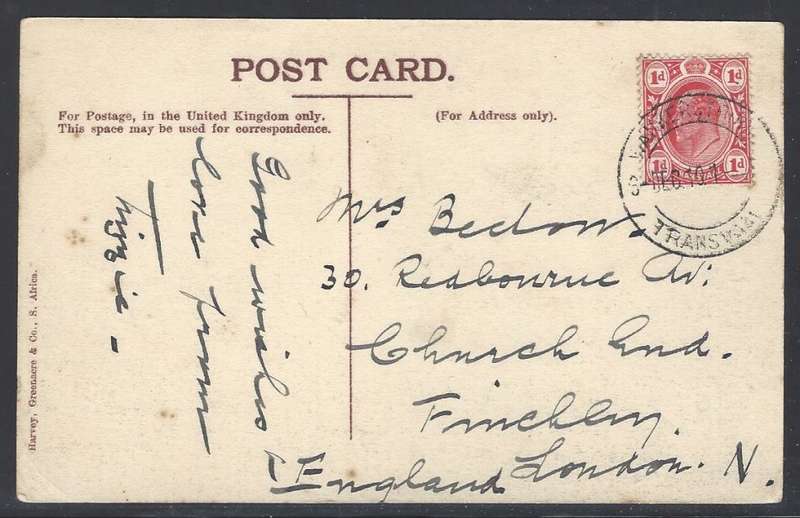 POST CARD.
For Postage, in the United Kingdom only.
This space may be used for correspondence.
(For Address only).
1d 1d
1d 1d
TRANSVAAL
DEC
TRANSVAAL
Good wishes &
love from
Lizzie -
Mrs Bedow.
30. Redbourne Av:
Church End.
Finchley.
London. N.
England.
Harvey, Greenacre & Co., S. Africa.